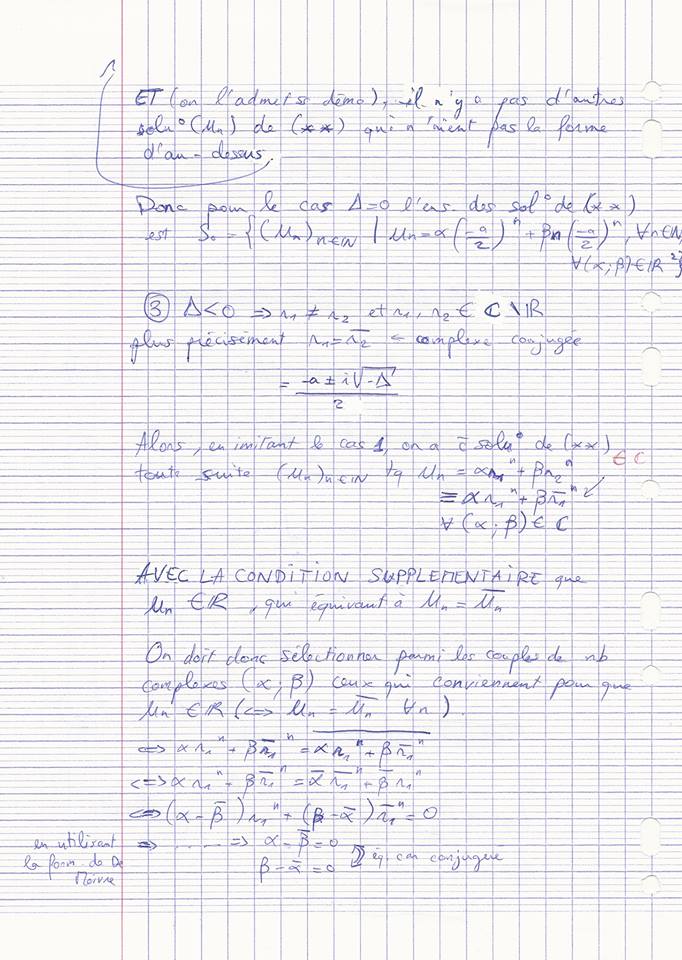 ET (on l'admet ss démo), il n'y a pas d'autres
solu° (Un) de (**) qui n'aient pas la forme
d'au-dessus.
Donc pour le cas Δ=0 l'ens. des sol° de (**)
est S₀ = {(Un)n∈ℕ | Un = α(-a/2)^n + βn(-a/2)^n, ∀n∈ℕ,
∀(α;β)∈ℝ²}
③ Δ<0 => r₁ ≠ r₂ et r₁, r₂ ∈ ℂ\ℝ
plus précisément r₁ = r̅₂ ← complexe conjugée
= (-a ± i√-Δ)/2
Alors, en imitant le cas 1, on a c̄ solu° de (**)
∈ ℂ
toute suite (Un)n∈ℕ tq Un = αr₁^n + βr₂^n
≡ αr₁^n + βr̅₁^n
∀(α;β)∈ℂ
AVEC LA CONDITION SUPPLEMENTAIRE que
Un ∈ ℝ, qui équivaut à Un = U̅n
On doit donc sélectionner parmi les couples de nb
complexes (α;β) ceux qui conviennent pour que
Un ∈ ℝ (<=> Un = U̅n ∀n).
<=> αr₁^n + βr̅₁^n = \overline{αr₁^n + βr̅₁^n}
<=> αr₁^n + βr̅₁^n = α̅ r̅₁^n + β̅ r₁^n
<=> (α - β̅)r₁^n + (β - α̅)r̅₁^n = 0
en utilisant
la form. de De
Moivre
=> ...... => α - β̅ = 0
β - α̅ = 0 éq. car conjuguée